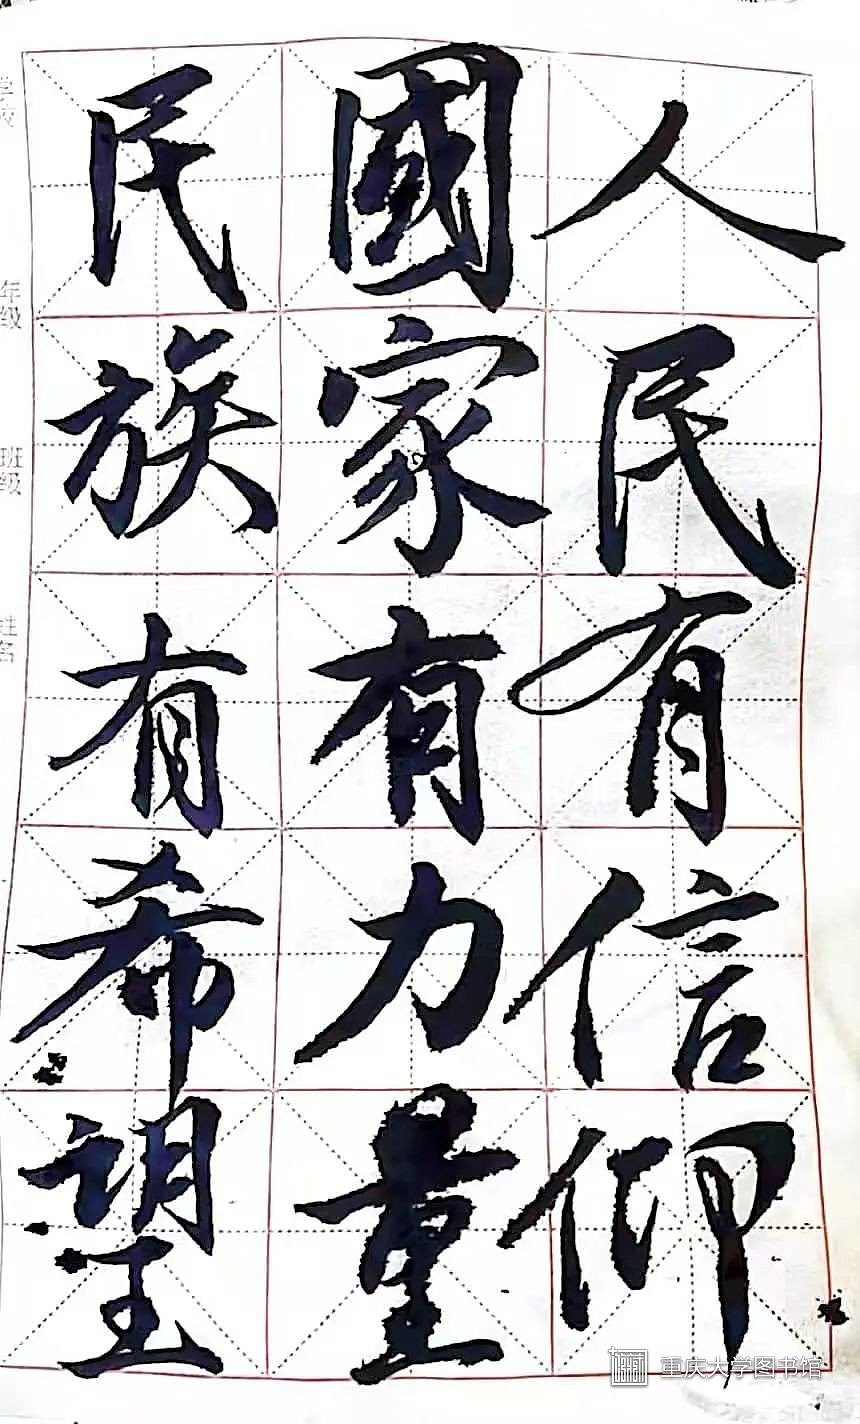 人民有信仰
國家有力量
民族有希望
学校
年级
班级
姓名
重庆大学图书馆